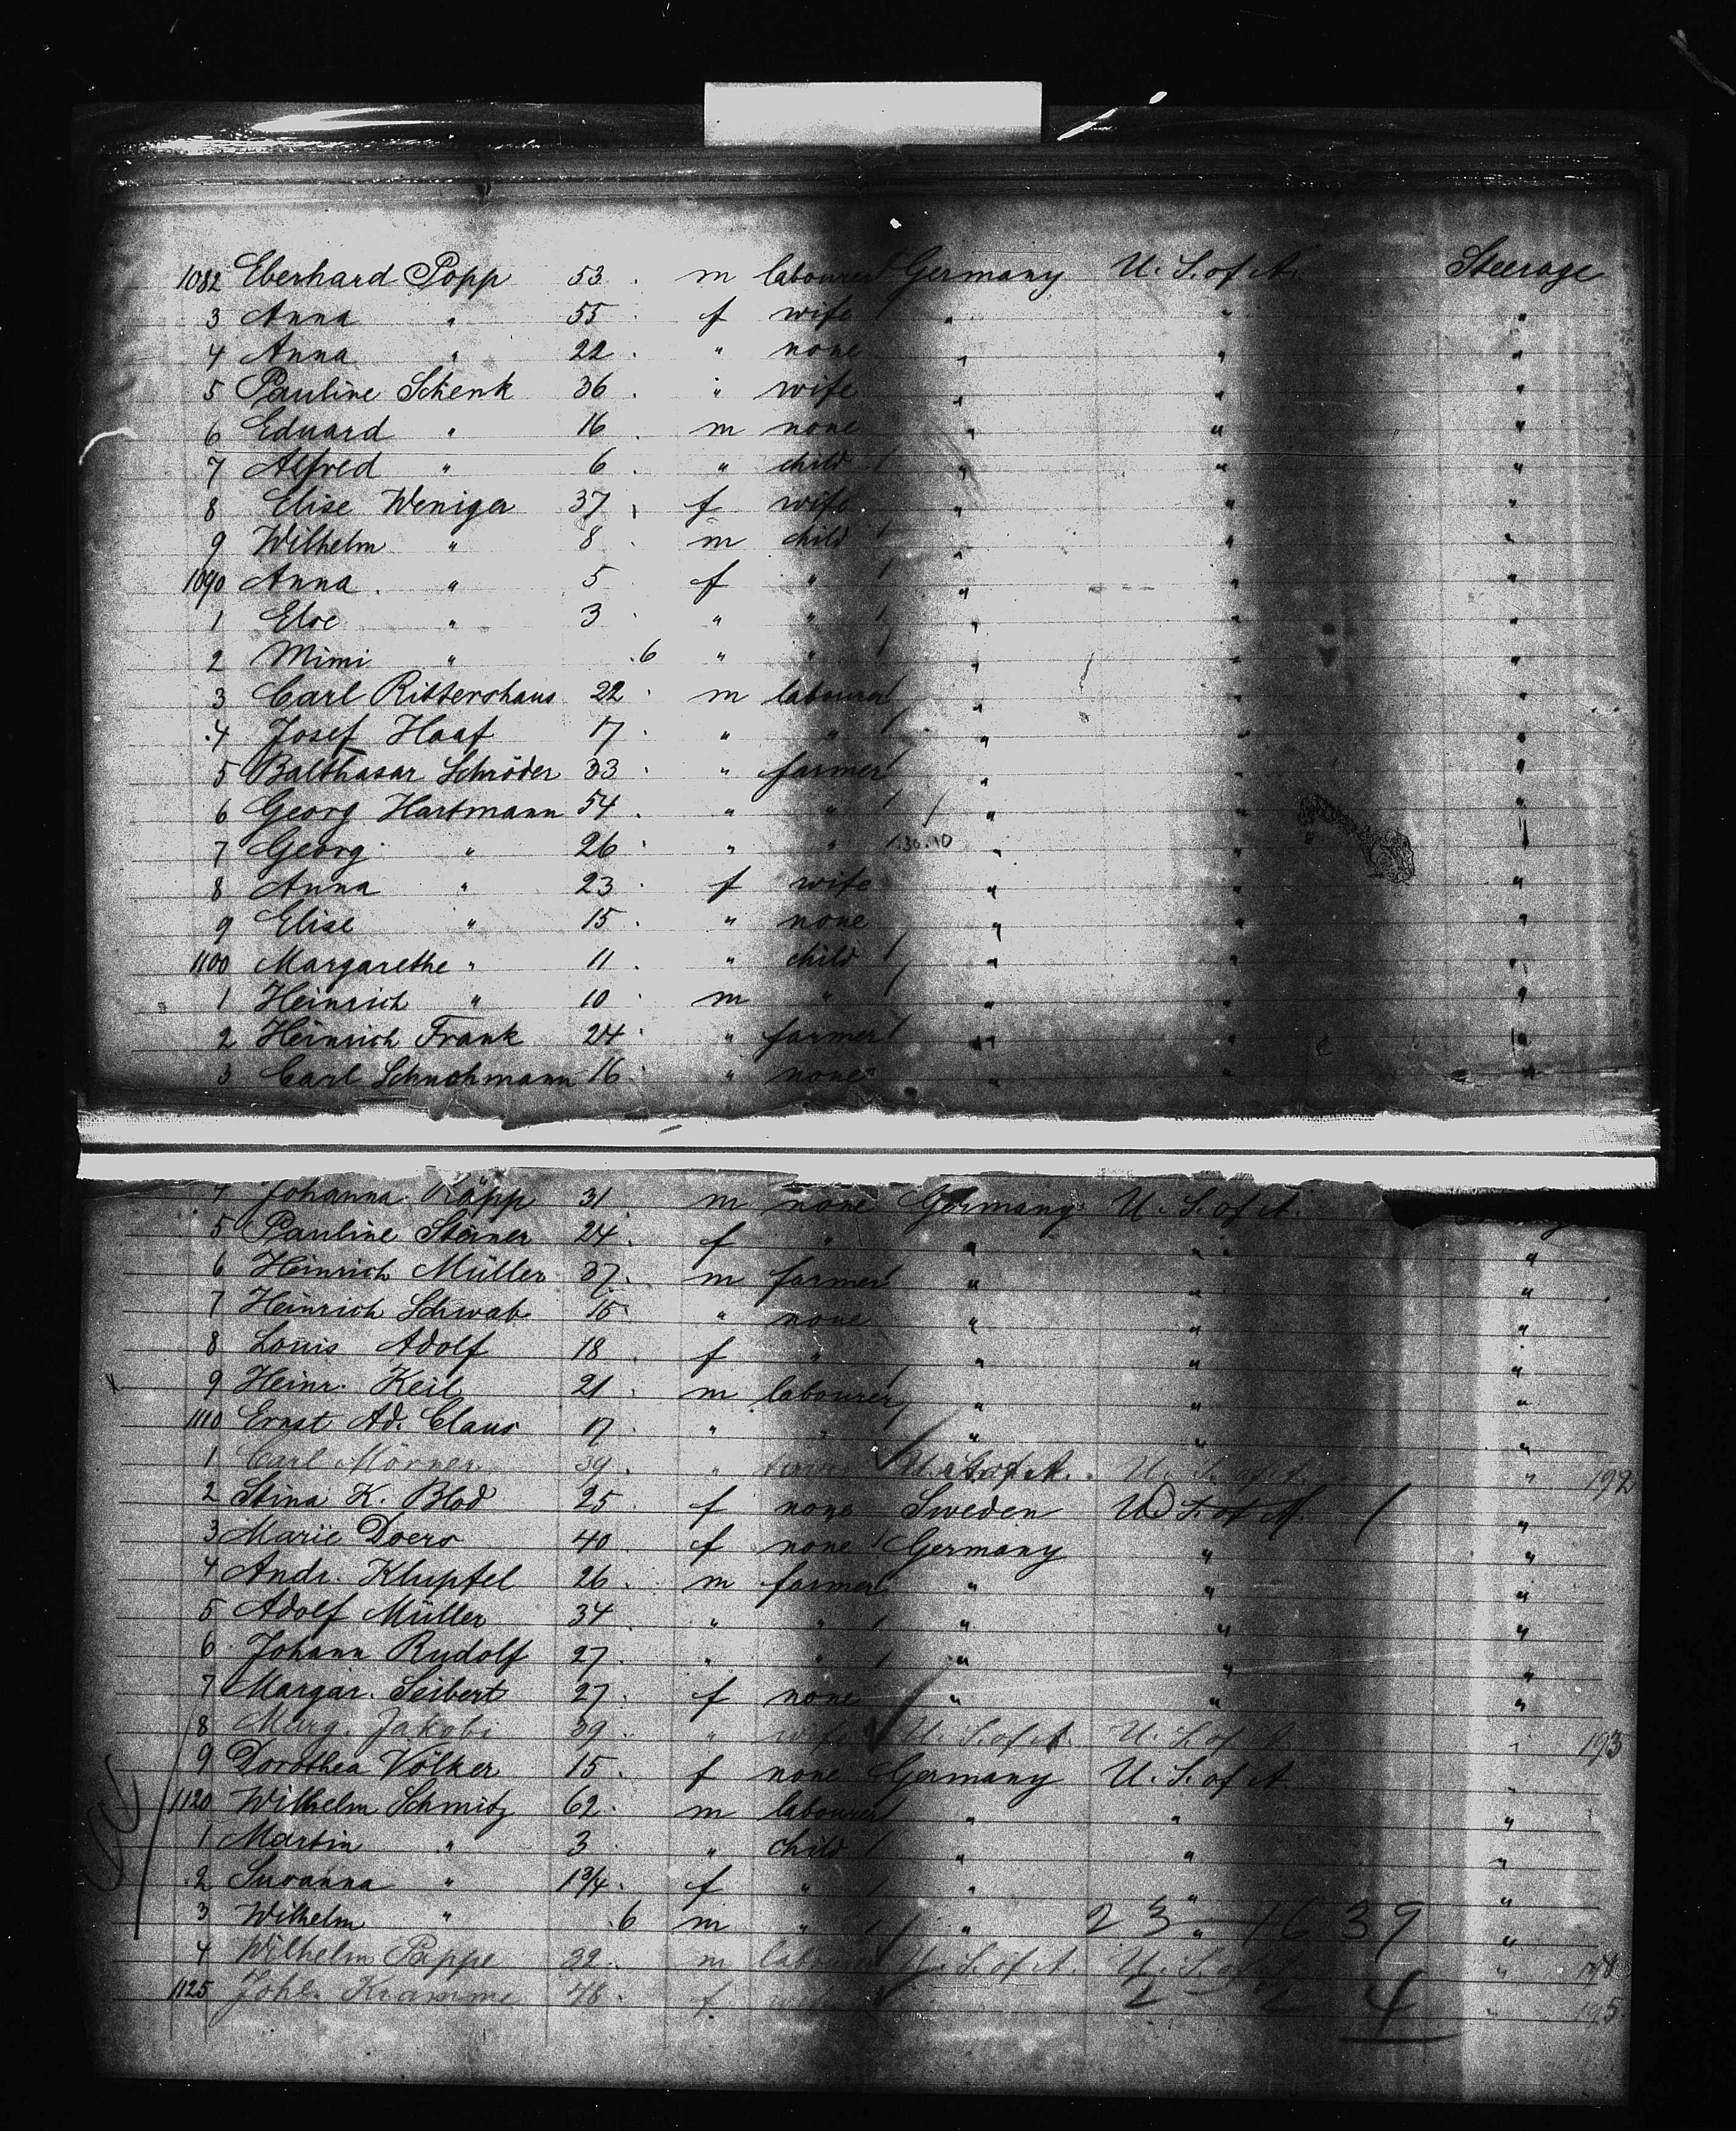 1082 Eberhard Popp 53 m labourer Germany U. S. of A. Steerage
3 Anna " 55 f wife " " "
4 Anna " 22 " none " " "
5 Pauline Schenk 36 " wife " " "
6 Eduard " 16 m none " " "
7 Alfred " 6 " child " " "
8 Elise Weniger 37 f wife " " "
9 Wilhelm " 8 m child " " "
1090 Anna " 5 f " " " "
1 Else " 3 " " " " "
2 Mimi " .6 " " " " "
3 Carl Rittershaus 22 m labourer " " "
4 Josef Haaf 17 " " " " "
5 Balthasar Schröder 33 " farmer " " "
6 Georg Hartmann 54 " " " " "
7 Georg " 26 " " 1.30.10 " " "
8 Anna " 23 f wife " " "
9 Elise " 15 " none " " "
1100 Margarethe " 11 " child " " "
1 Heinrich " 10 m " " " "
2 Heinrich Frank 24 " farmer " " "
3 Carl Schuchmann 16 " none " " "
4 Johanna Rapp 31 m none Germany U. S. of A.
5 Pauline Steiner 24 f " " " "
6 Heinrich Müller 37 m farmer " " "
7 Heinrich Schwab 16 " none " " "
8 Louis Adolf 18 f " " " "
9 Heinr. Keil 21 m labourer " " "
1110 Ernst Ad. Claus 17 " " " " "
1 Carl Mörner 39 " U. S. of A. U. S. of A. " 192
2 Stina K. Blod 25 f none Sweden U. S. of A. "
3 Marie Doers 40 f none Germany " "
4 Andr. Klupfel 26 m farmer " " "
5 Adolf Müller 34 " " " " "
6 Johann Rudolf 27 " " " " "
7 Margar. Seibert 27 f none " " "
8 Marg. Jakobi 39 " wife U. S. of A. U. S. of A. " 193
9 Dorothea Völker 15 f none Germany U. S. of A. "
1120 Wilhelm Schmitz 62 m labourer " " "
1 Martin " 3 " child " " "
2 Susanna " 1 3/4 f " " " "
3 Wilhelm " .6 m " " " " 23 1639
4 Wilhelm Pappe 32 m labourer U. S. of A. U. S. of A. "
1125 Johe. Kramme 48 f 2 2 4 " 195